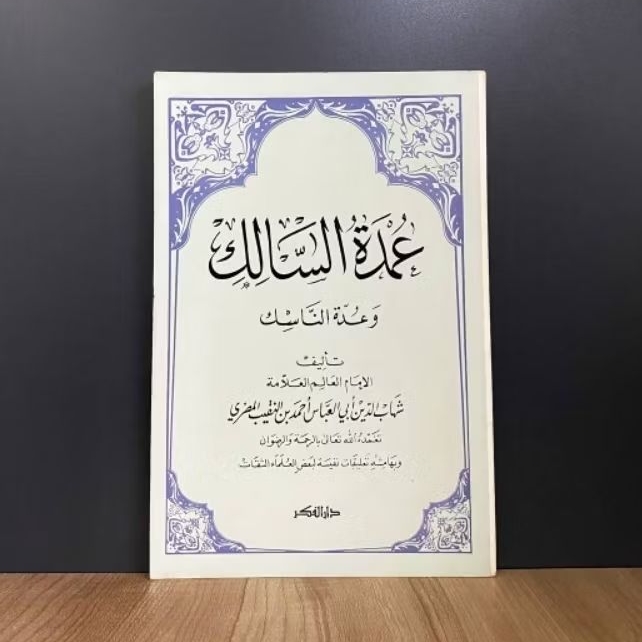 عُمْدَةُ السَّالِكِ
وَعُدّة النَّاسِك
تأليف
الإمام العالم العلامة
شهاب الدين أبي العباس أحمد بن النقيب المصري
تغمده الله تعالى بالرحمة والرضوان
وبهامشه تعليقات نفيسة لبعض العلماء الثقات
دار الفكر